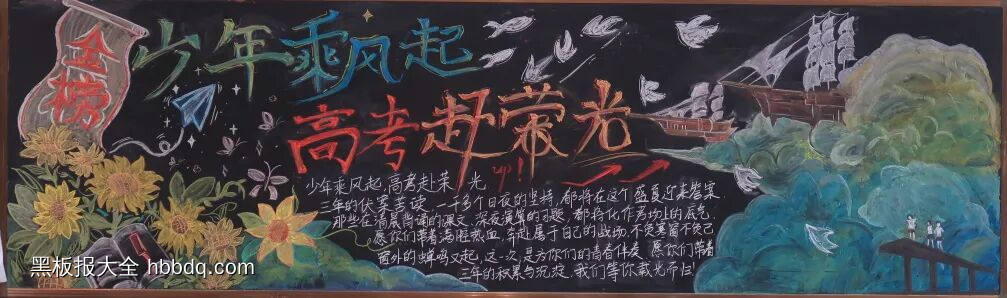 金榜
少年乘风起
高考赴荣光
up!
少年乘风起,高考赴荣光
三年的伏案苦读,一千多个日夜的坚持,都将在这个盛夏迎来答案
那些在清晨背诵的课文,深夜演算的习题,都将化作考场上的底气,
愿你们带着满腔热血,奔赴属于自己的战场,不负寒窗不负己
窗外的蝉鸣又起,这一次,是为你们的青春伴奏 愿你们带着
三年的积累与沉淀 我们等你载光而归!
黑板报大全 hbbdq.com